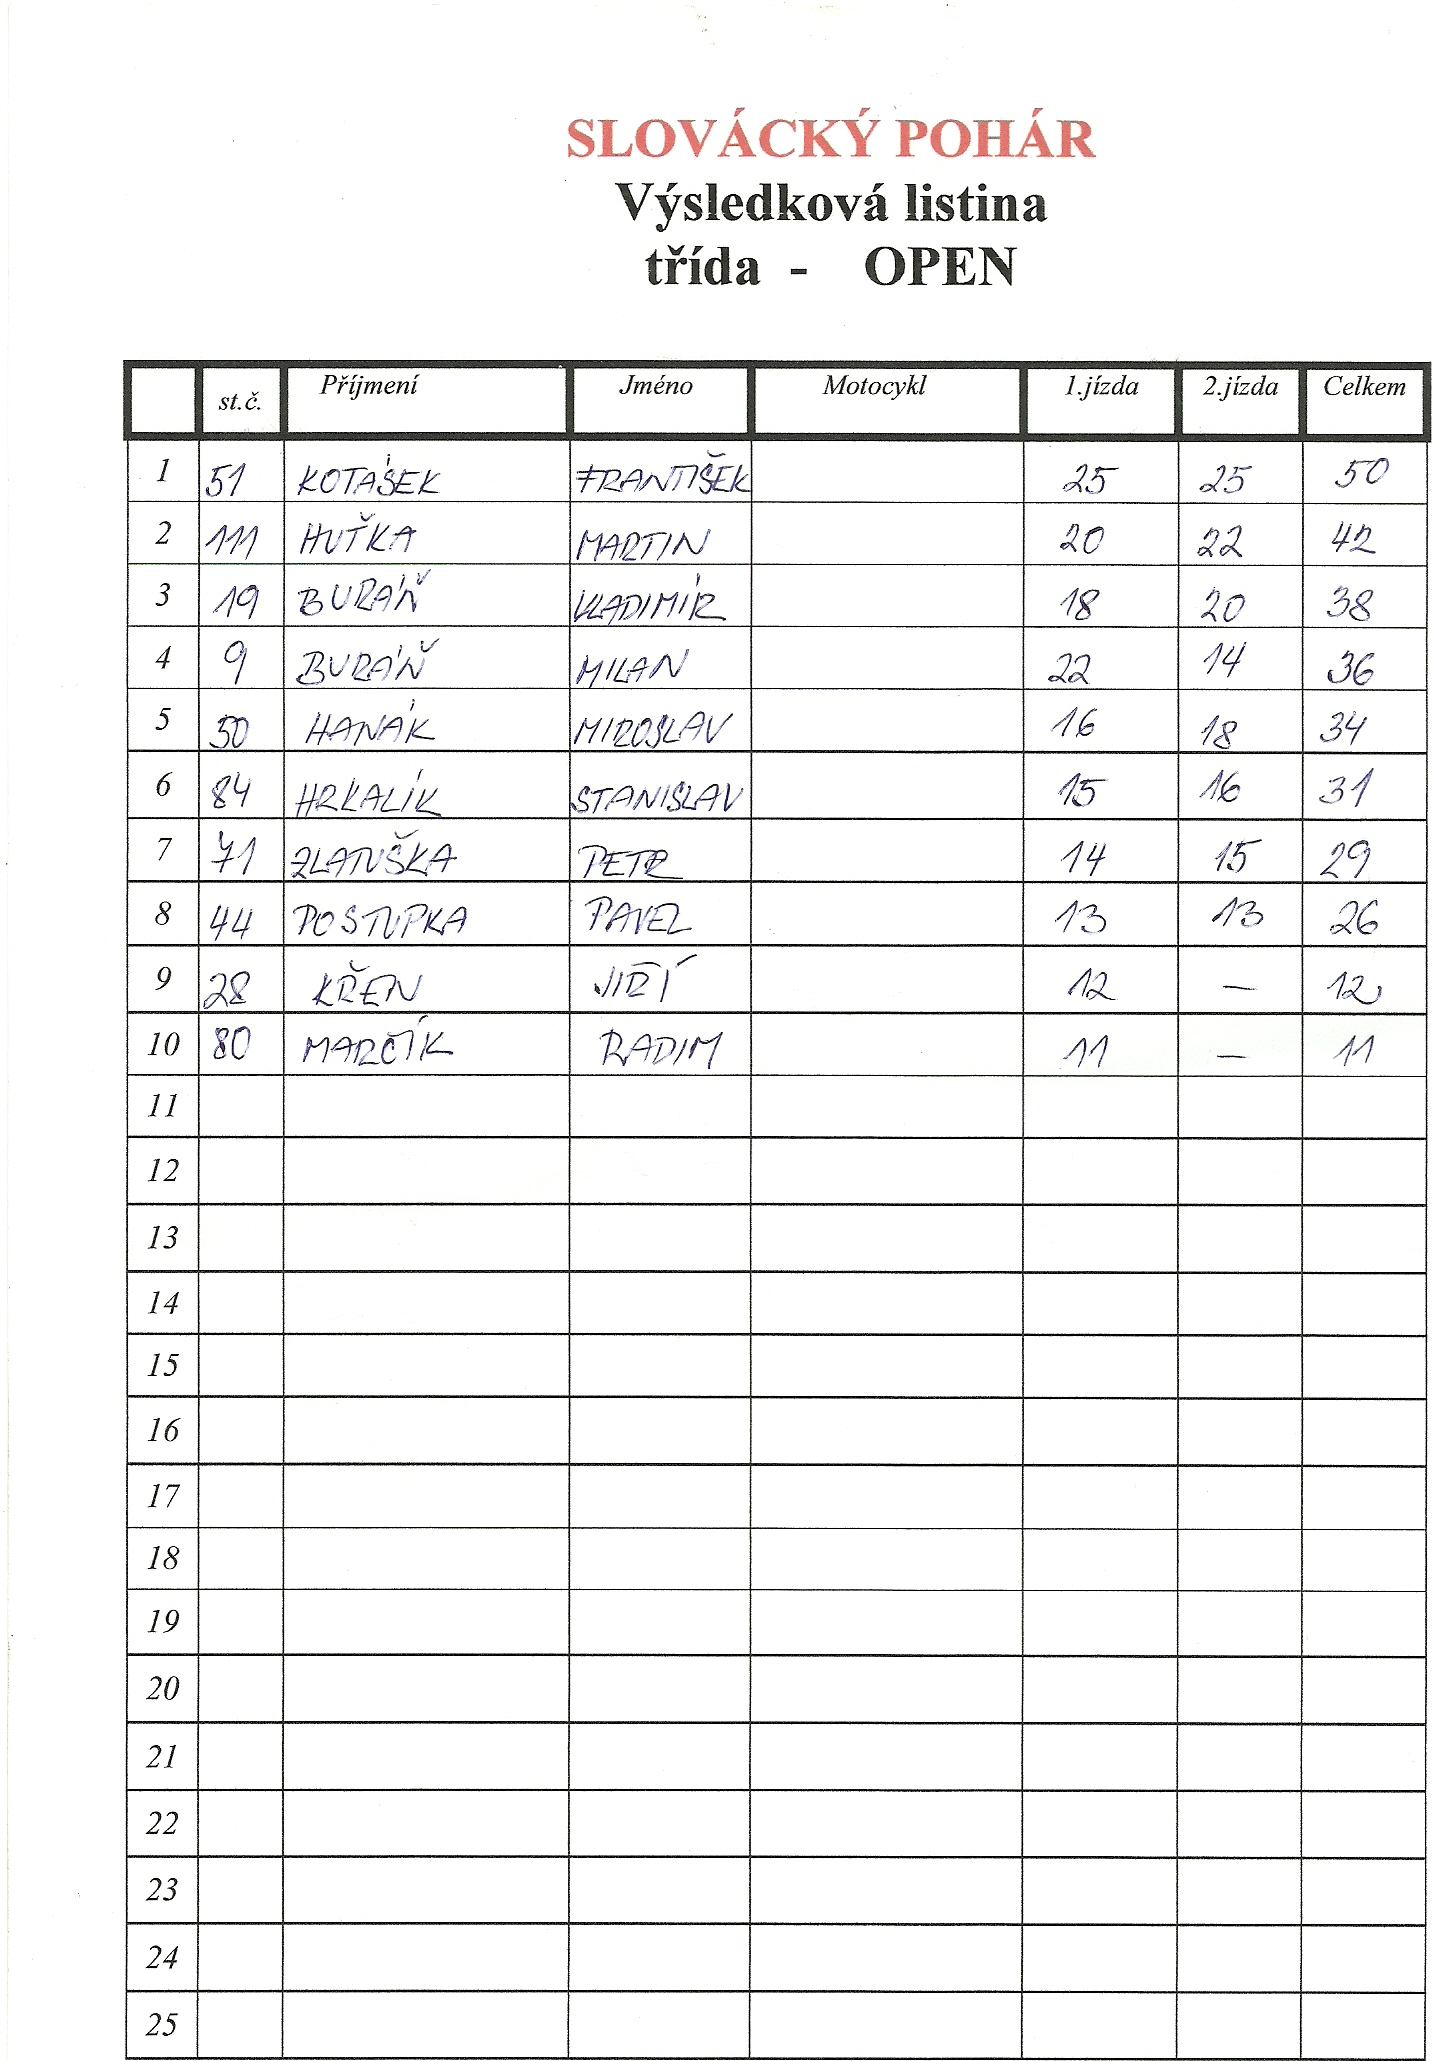 SLOVÁCKÝ POHÁR
Výsledková listina
třída - OPEN
st.č. Příjmení Jméno Motocykl 1.jízda 2.jízda Celkem
1 51 KOTÁSEK FRANTIŠEK 25 25 50
2 111 HUŤKA MARTIN 20 22 42
3 19 BURÁŇ VLADIMÍR 18 20 38
4 9 BURÁŇ MILAN 22 14 36
5 50 HANÁK MIROSLAV 16 18 34
6 84 HRKALÍK STANISLAV 15 16 31
7 71 ZLATUŠKA PETR 14 15 29
8 44 POSTUPKA PAVEL 13 13 26
9 28 KŘEN JIŘÍ 12 — 12
10 80 MARČÍK RADIM 11 — 11
11
12
13
14
15
16
17
18
19
20
21
22
23
24
25